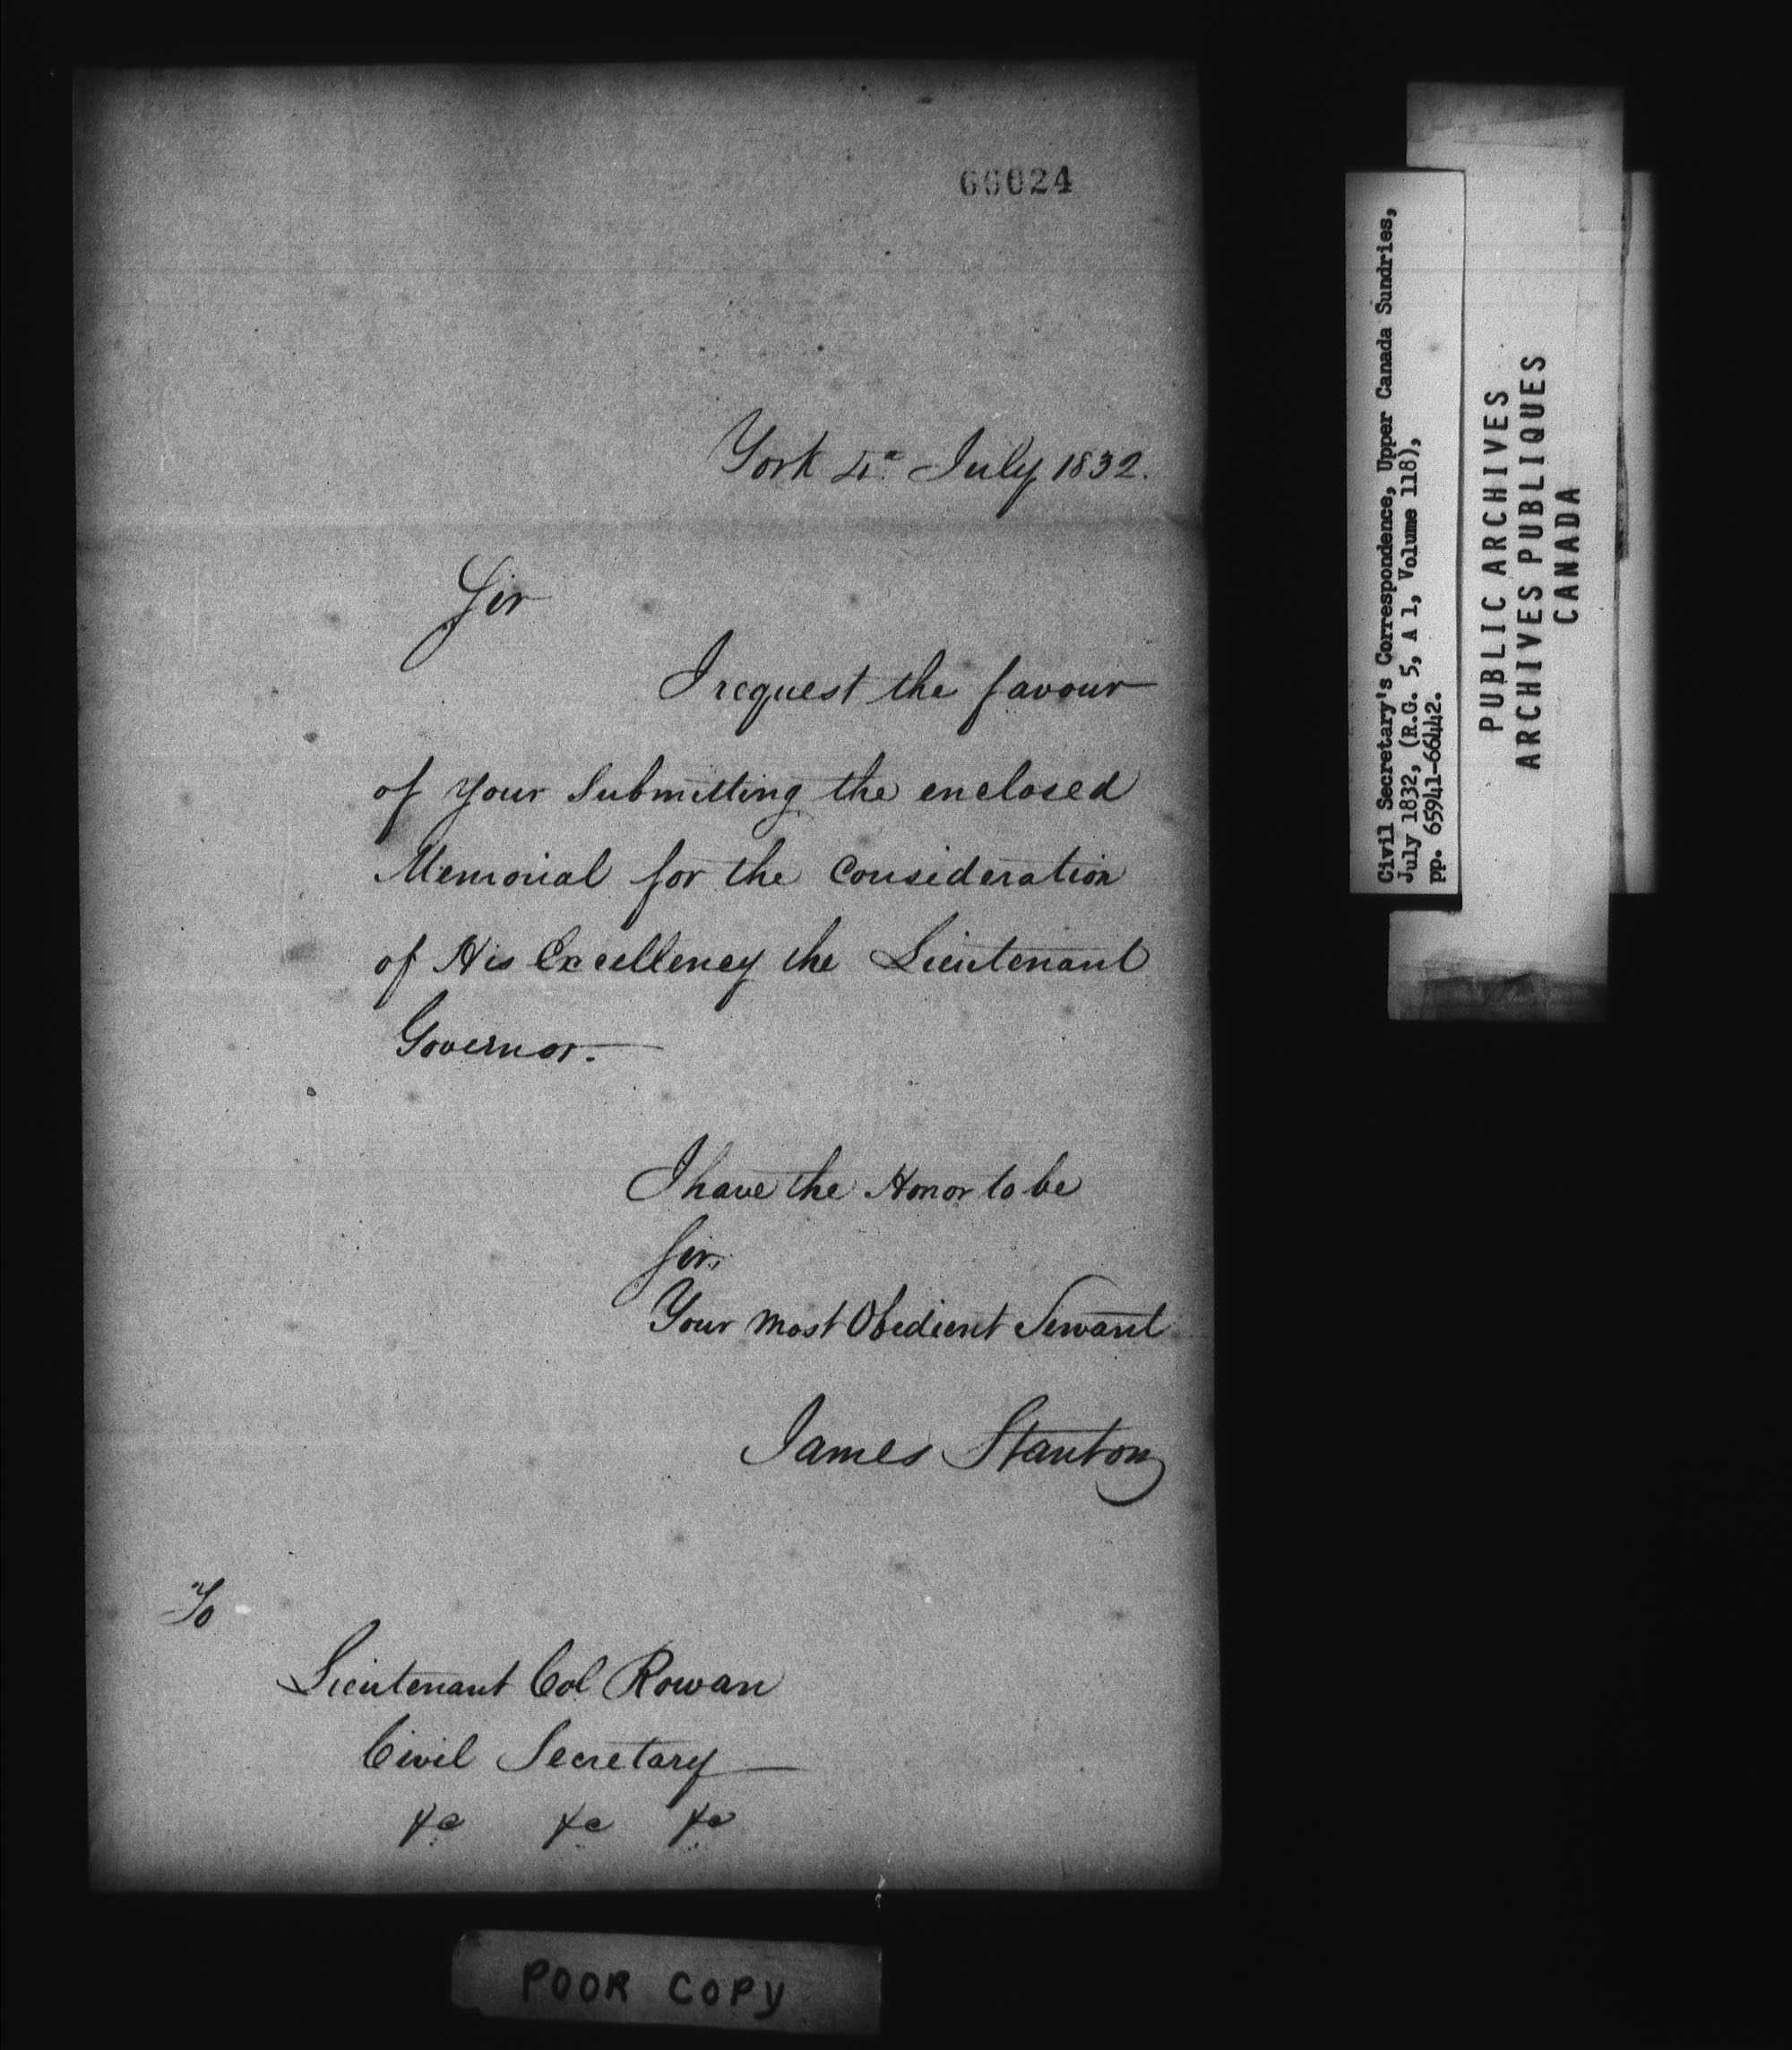 66024
York 4th July 1832.
Sir
I request the favour
of your Submitting the enclosed
Memorial for the Consideration
of His Excellency the Lieutenant
Governor.
I have the Honor to be
Sir,
Your most Obedient Servant
James Stanton
To
Lieutenant Col Rowan
Civil Secretary
&c &c &c
POOR COPY
Civil Secretary's Correspondence, Upper Canada Sundries,
July 1832, (R.G. 5, A 1, Volume 118),
pp. 65941-66442.
PUBLIC ARCHIVES
ARCHIVES PUBLIQUES
CANADA